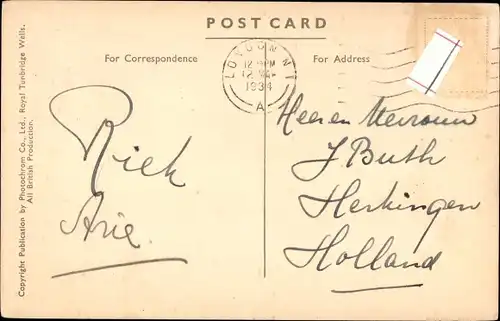 POST CARD
For Correspondence
For Address
LONDON N1
12 MAR
1934
A
Riek
Arie.
Heer en Mevrouw
J Buth
Herkingen
Holland
Copyright Publication by Photochrom Co., Ltd., Royal Tunbridge Wells.
All British Production.